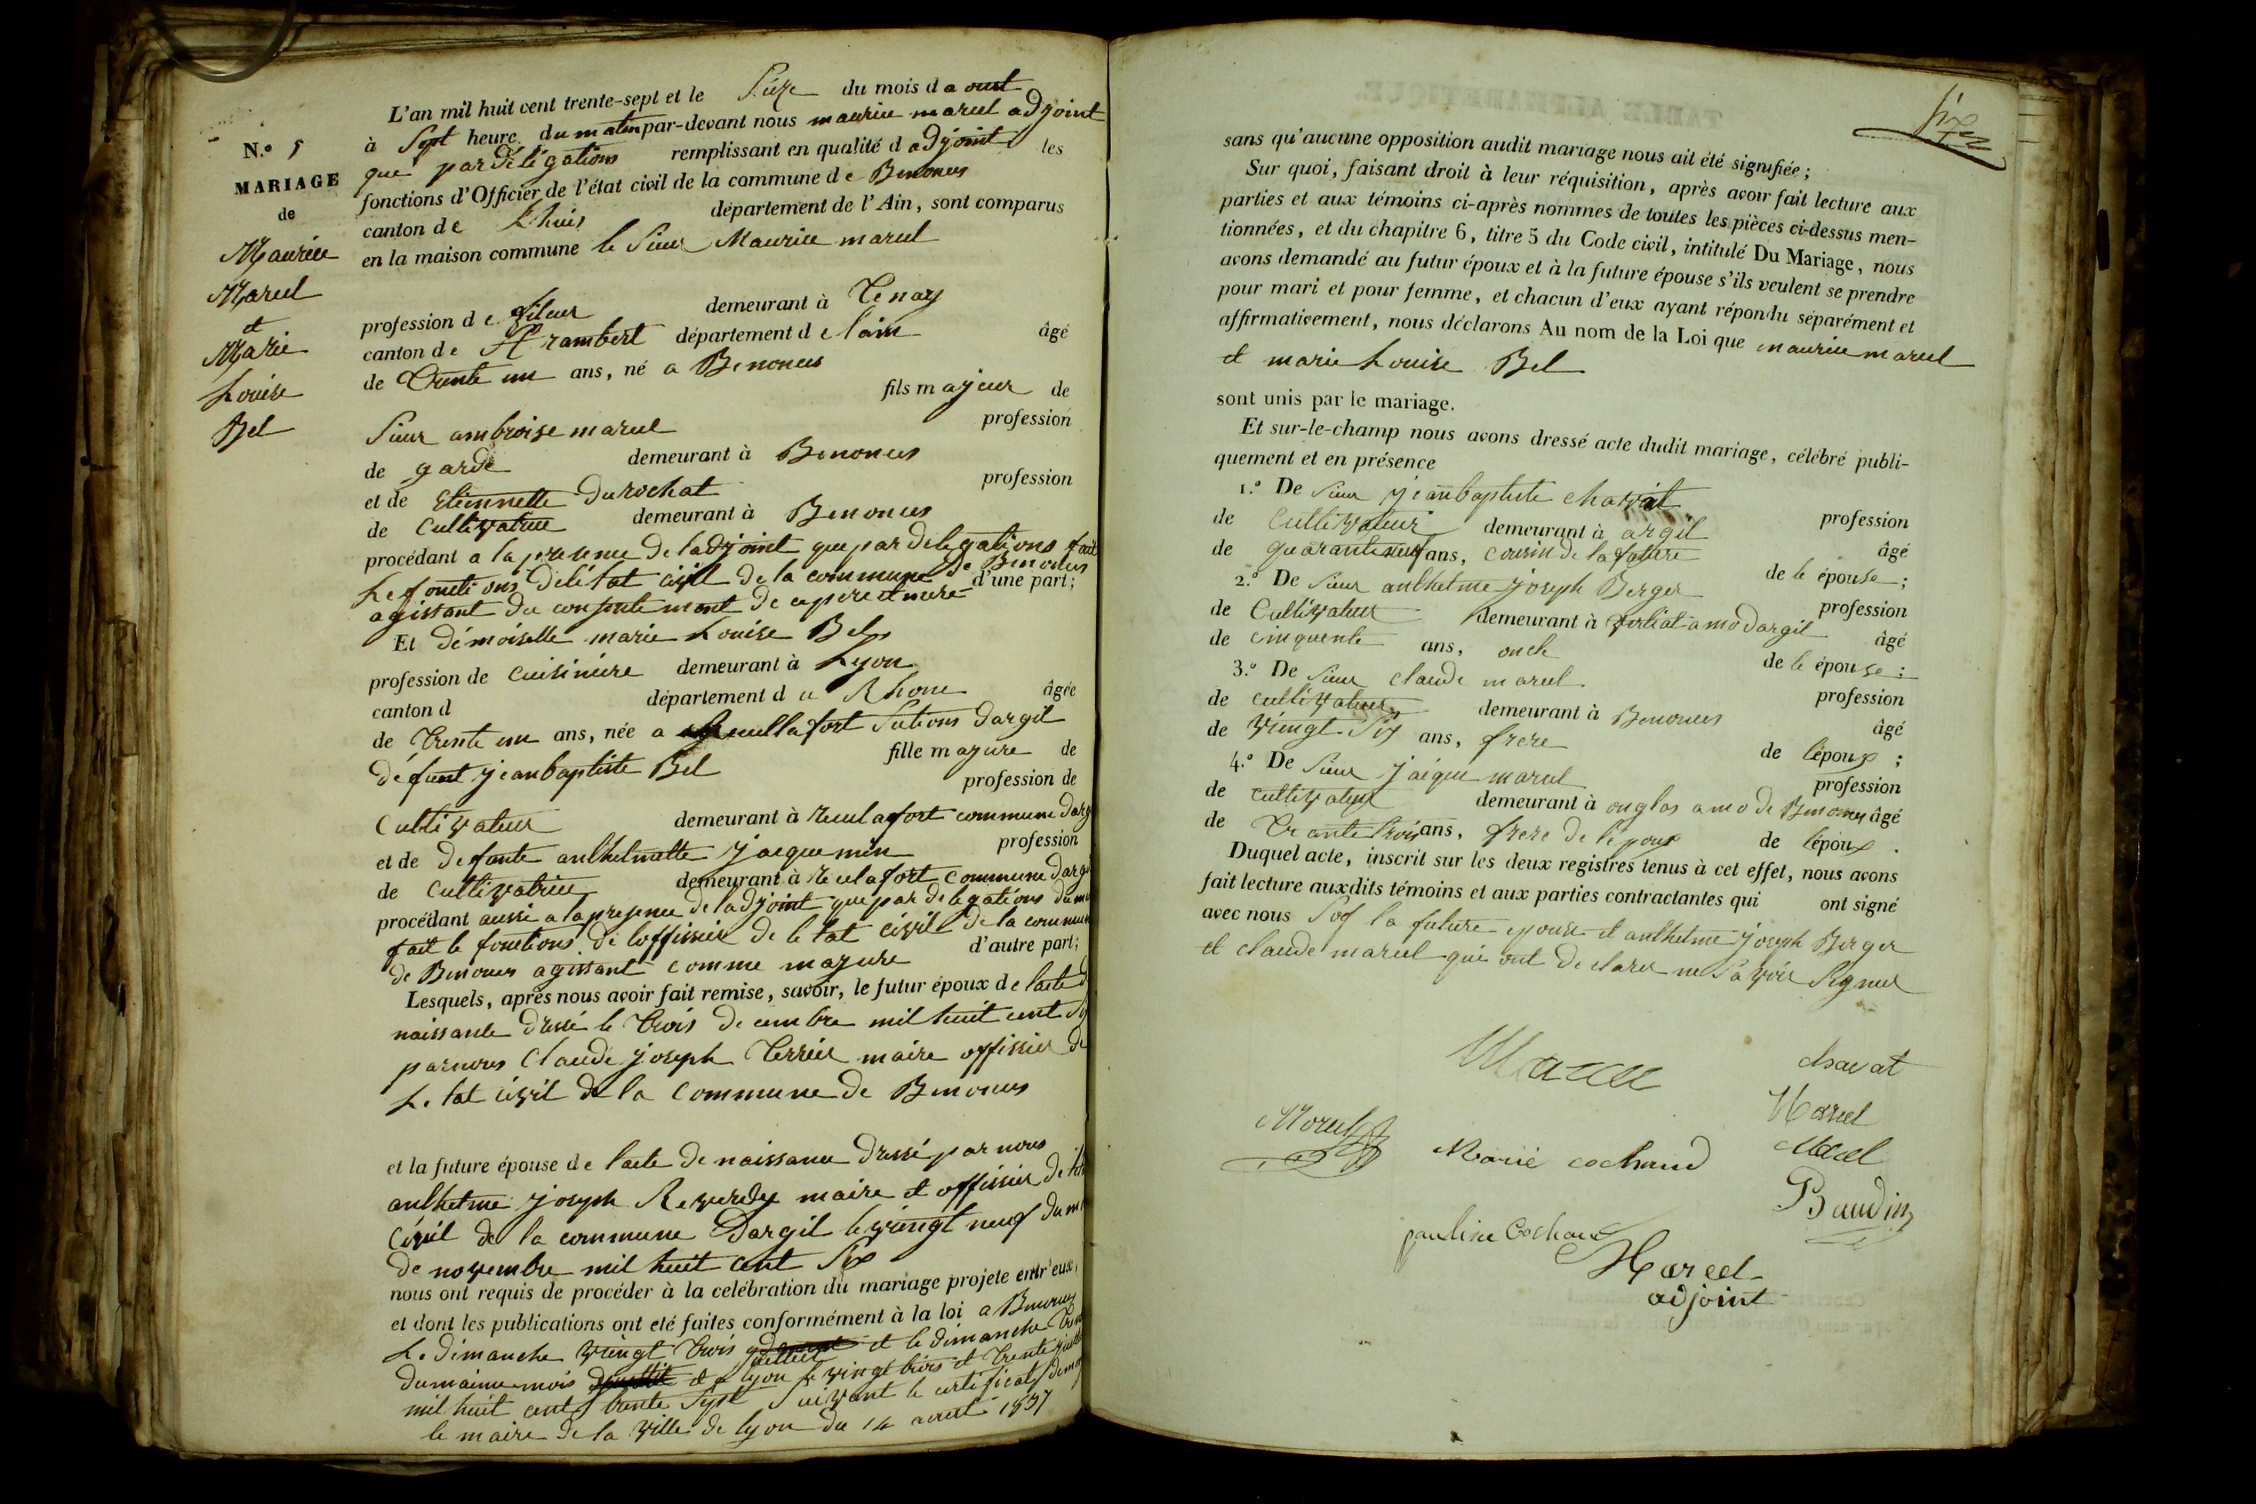 N.o 5
MARIAGE
de
Maurice
Marcel
et
Marie
Louise
Bel
L'an mil huit cent trente-sept et le Sèize du mois d aout
à Sept heure du matin par-devant nous maurice marcel adjoint
que par délégations remplissant en qualité d adjoint les
fonctions d'Officier de l'état civil de la commune de Benonces
canton de Lhuis département de l'Ain, sont comparus
en la maison commune le Sieur Maurice marcel
profession de fileur demeurant à Tenay
canton de St rambert département de lain âgé
de Trente un ans, né a Benonces
fils majeur de
Sieur ambroise marcel profession
de garde demeurant à Benonces
et de Etiennette Durochat profession
de Cultivatrice demeurant à Benonces
procédant a la presence de ladjoint que par delegations fait
Le fonctions deletat civil de la commune de Benonces
agissant du consentement de ce pere et mere d'une part;
Et démoiselle marie Louise Bel
profession de cuisiniere demeurant à Lyon
canton d département du Rhone âgée
de Trente un ans, née a reculafort Sections dargil
fille majure de
défunt jeanbaptiste Bel profession de
Cultivateur demeurant à reculafort commune darg
et de defunte anthelmette jacquemin profession
de Cultivatrice demeurant à reculafort commune dargi
procédant aussi a la presence de ladjoint que par delegations du m
fait le fonctions de loffissier de le tat civil de la commune
de Benonces agissant comme majure d'autre part;
Lesquels, après nous avoir fait remise, savoir, le futur époux de lacte d
naissante dressé le Trois decembre mil huit cent Si
par nous Claude joseph Terrier maire offissier de
Le tat civil de la Commune de Benonces
et la future épouse de lacte de naissance dressé par nous
anthelme joseph Reverdy maire et offissier de lét
civil de la commune Dargil le vingt neuf du m
de novembre mil huit cent Six
nous ont requis de procéder à la celébration du mariage projeté entr'eux,
et dont les publications ont été faites conformément à la loi a Benonces
Le dimanche vingt Trois juillet et le dimanche Trente
du maime mois et a lyon le vingt trois et Trente juillet
mil huit cent trente Sept Suivant le certificat de m
le maire de la ville de lyon du 14 aout 1837
six
sans qu'aucune opposition audit mariage nous ait été signifiée;
Sur quoi, faisant droit à leur réquisition, après avoir fait lecture aux
parties et aux témoins ci-après nommés de toutes les pièces ci-dessus men-
tionnées, et du chapitre 6, titre 5 du Code civil, intitulé Du Mariage, nous
avons demandé au futur époux et à la future épouse s'ils veulent se prendre
pour mari et pour femme, et chacun d'eux ayant répondu séparément et
affirmativement, nous déclarons Au nom de la Loi que maurice marcel
et marie Louise Bel
sont unis par le mariage.
Et sur-le-champ nous avons dressé acte dudit mariage, célébré publi-
quement et en présence
1.o De Sieur jeanbaptiste chavat profession
de Cultivateur demeurant à argil âgé
de quarante neuf ans, cousin de la future de le épouse;
2.o De Sieur anthelme joseph Berger profession
de Cultivateur demeurant à amo dargil âgé
de cinquente ans, oncle de le épouse:
3.o De Sieur claude marcel profession
de cultivateur demeurant à Benonces âgé
de vingt-Six ans, frere de lépoux;
4.o De Sieur jacque marcel profession
de cultivateur demeurant à onglas amo de Benonces âgé
de Trante trois ans, frere de lépoux de lépoux.
Duquel acte, inscrit sur les deux registres tenus à cet effet, nous avons
fait lecture auxdits témoins et aux parties contractantes qui ont signé
avec nous Sof la future epouse et anthelme joseph Berger
et claude marcel qui ont declarer ne Savoir Signer
Marcel
chavat
Marcel
Morel
Marie cochaud
Marcel
Baudin
pauline Cochaud
Marcel
adjoint